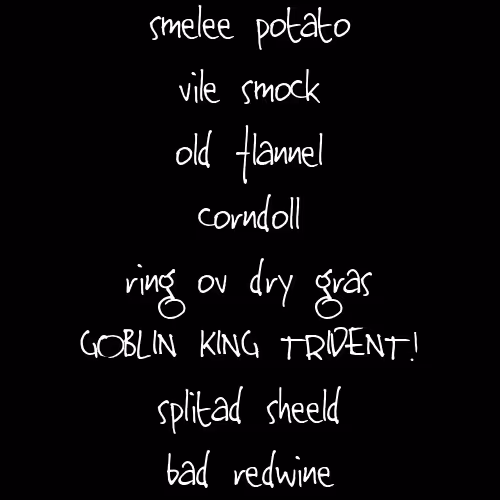 smelee potato
vile smock
old flannel
corndoll
ring ov dry gras
GOBLIN KING TRIDENT!
splitad sheeld
bad redwine